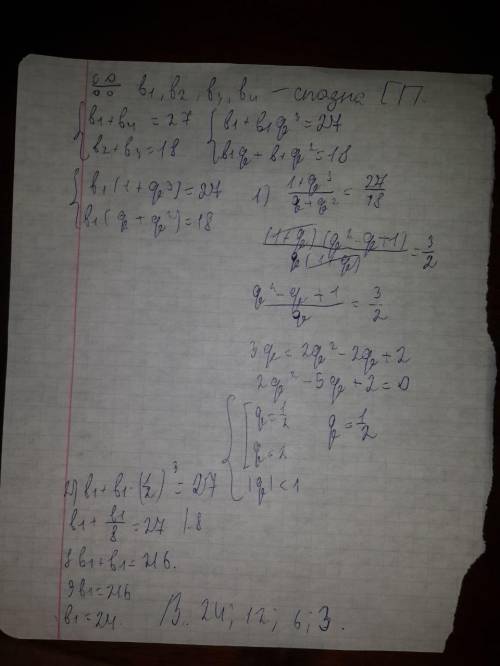 ∺ b₁, b₂, b₃, b₄ – спадна ГП.
{ b₁+b₄ = 27
b₂+b₃ = 18
{ b₁+b₁q³ = 27
b₁q + b₁q² = 18
{ b₁(1+q³) = 27
b₁(q+q²) = 18
1) (1+q³)/(q+q²) = 27/18
(1+q)(q²-q+1)/(q(1+q)) = 3/2
(q²-q+1)/q = 3/2
3q = 2q²-2q+2
2q²-5q+2=0
{ [ q=1/2
q=2
|q|<1
q=1/2
2) b₁+b₁·(1/2)³=27
b₁+b₁/8=27 |·8
8b₁+b₁=216.
9b₁=216
b₁=24.
В. 24; 12; 6; 3.